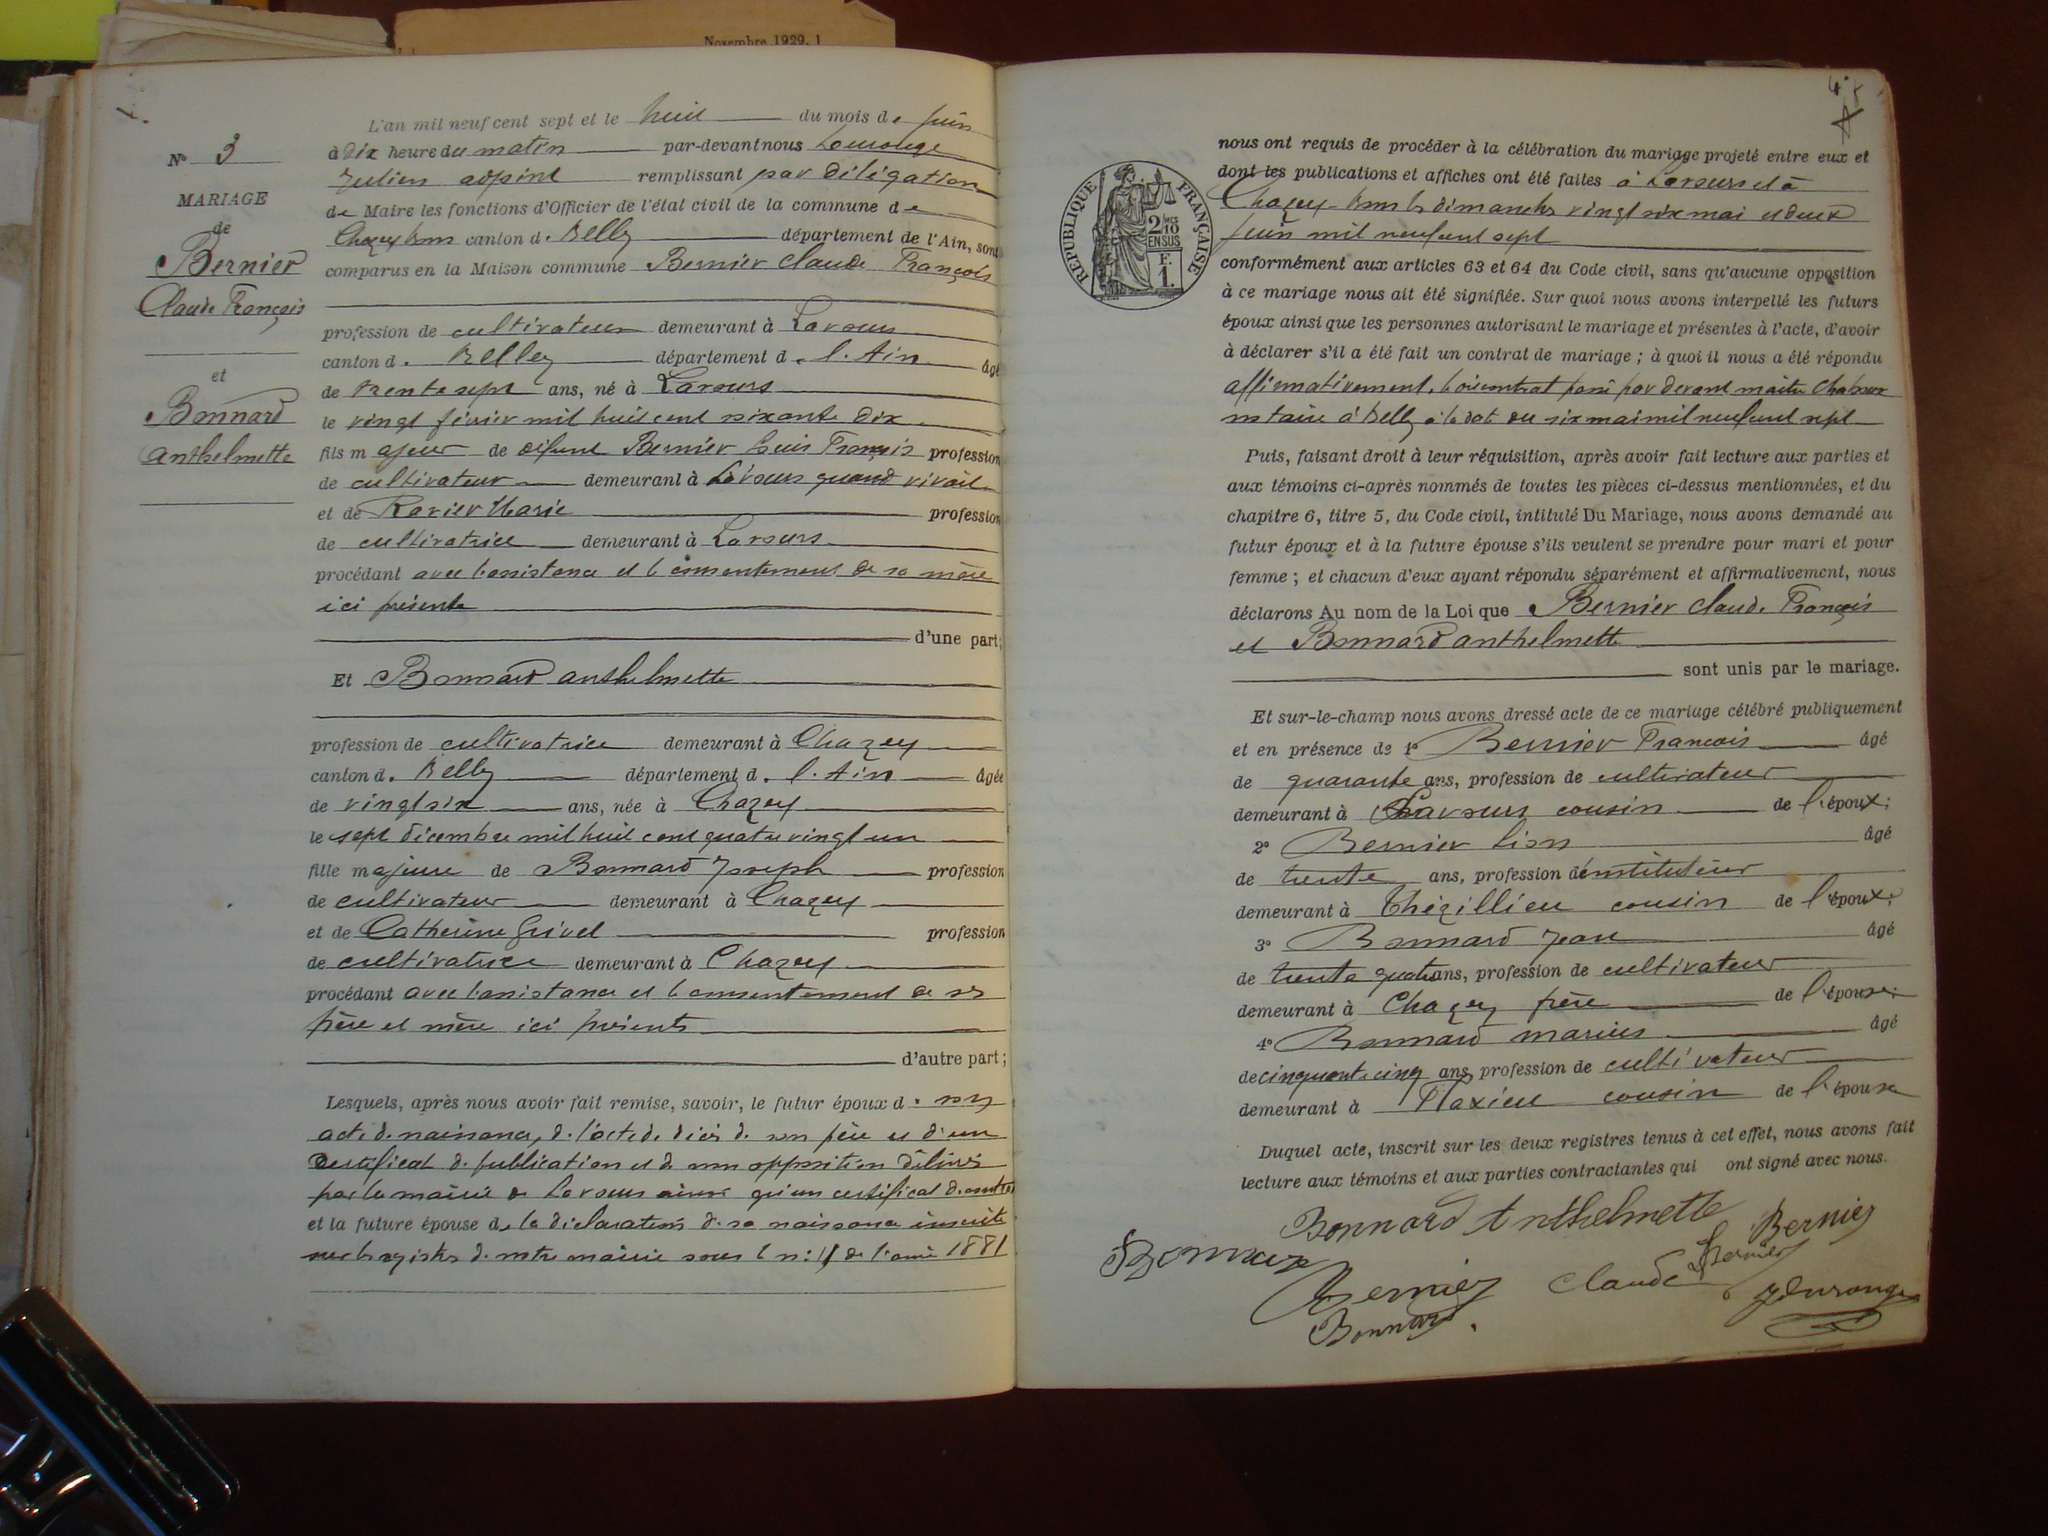 Novembre 1929. 1
N° 3
MARIAGE
de
Bernier
Claude François
et
Bonnard
Anthelmette
L'an mil neuf cent sept et le huit du mois de juin
à dix heure du matin par-devant nous
Julien adjoint remplissant par délégation
de Maire les fonctions d'Officier de l'état civil de la commune de
Chazey bons canton d. Belley département de l'Ain, sont
comparus en la Maison commune Bernier Claude François
profession de cultivateur demeurant à Lavours
canton d. Belley département d. l'Ain âgé
de trente sept ans, né à Lavours
le vingt février mil huit cent soixante dix
fils majeur de défunt Bernier Louis François profession
de cultivateur demeurant à Lavours quand vivait
et de Ravier Marie profession
de cultivatrice demeurant à Lavours
procédant avec l'assistance et le consentement de sa mère
ici présente
d'une part;
Et Bonnard anthelmette
profession de cultivatrice demeurant à Chazey
canton d. Belley département d. l'Ain âgée
de vingt six ans, née à Chazey
le sept décembre mil huit cent quatre vingt un
fille majeure de Bonnard Joseph profession
de cultivateur demeurant à Chazey
et de Catherine Grivel profession
de cultivatrice demeurant à Chazey
procédant avec l'assistance et le consentement de ses
père et mère ici présents
d'autre part;
Lesquels, après nous avoir fait remise, savoir, le futur époux d. son
acte de naissance, de l'acte de décès de son père et d'un
certificat de publication et de non opposition délivré
par la mairie de Lavours ainsi qu'un certificat de contrat
et la future épouse de la déclaration de sa naissance inscrite
sur les registres de notre mairie sous le n: 11 de l'année 1881
RÉPUBLIQUE FRANÇAISE
2/10 EN SUS
F. 1.
nous ont requis de procéder à la célébration du mariage projeté entre eux et
dont les publications et affiches ont été faites à Lavours et à
Chazey-bons les dimanches vingt six mai et deux
juin mil neuf cent sept
conformément aux articles 63 et 64 du Code civil, sans qu'aucune opposition
à ce mariage nous ait été signifiée. Sur quoi nous avons interpellé les futurs
époux ainsi que les personnes autorisant le mariage et présentes à l'acte, d'avoir
à déclarer s'il a été fait un contrat de mariage; à quoi il nous a été répondu
affirmativement, le contrat passé par devant maître
notaire à Belley à la date du six mai mil neuf cent sept
Puis, faisant droit à leur réquisition, après avoir fait lecture aux parties et
aux témoins ci-après nommés de toutes les pièces ci-dessus mentionnées, et du
chapitre 6, titre 5, du Code civil, intitulé Du Mariage, nous avons demandé au
futur époux et à la future épouse s'ils veulent se prendre pour mari et pour
femme; et chacun d'eux ayant répondu séparément et affirmativement, nous
déclarons Au nom de la Loi que Bernier Claude François
et Bonnard anthelmette
sont unis par le mariage.
Et sur-le-champ nous avons dressé acte de ce mariage célébré publiquement
et en présence de 1° Bernier Francois âgé
de quarante ans, profession de cultivateur
demeurant à Lavours cousin de l'époux;
2° Bernier Léon âgé
de trente ans, profession d'instituteur
demeurant à Thézillieu cousin de l'époux;
3° Bonnard Jean âgé
de trente quatre ans, profession de cultivateur
demeurant à Chazey frère de l'épouse;
4° Bonnard marius âgé
de cinquante cinq ans, profession de cultivateur
demeurant à Flaxieu cousin de l'épouse
Duquel acte, inscrit sur les deux registres tenus à cet effet, nous avons fait
lecture aux témoins et aux parties contractantes qui ont signé avec nous.
Bonnard Anthelmette Bernier
Bonnard Bernier Claude Bernier
Bonnard